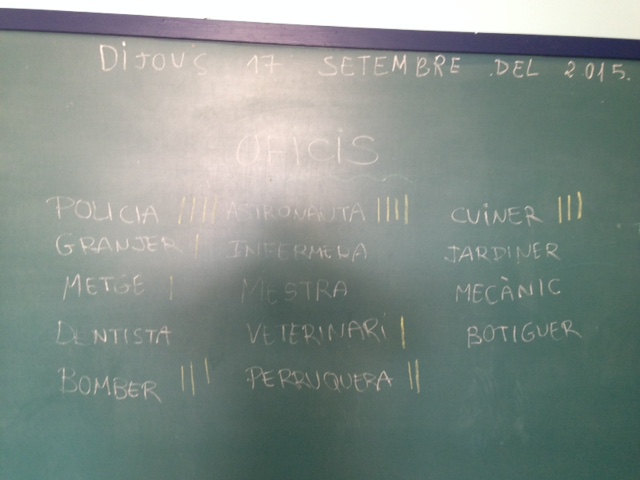 DIJOUS 17 SETEMBRE DEL 2015.
OFICIS
POLICIA |||| ASTRONAUTA |||| CUINER |||
GRANJER | INFERMERA JARDINER
METGE | MESTRA MECÀNIC
DENTISTA VETERINARI | BOTIGUER
BOMBER ||| PERRUQUERA ||